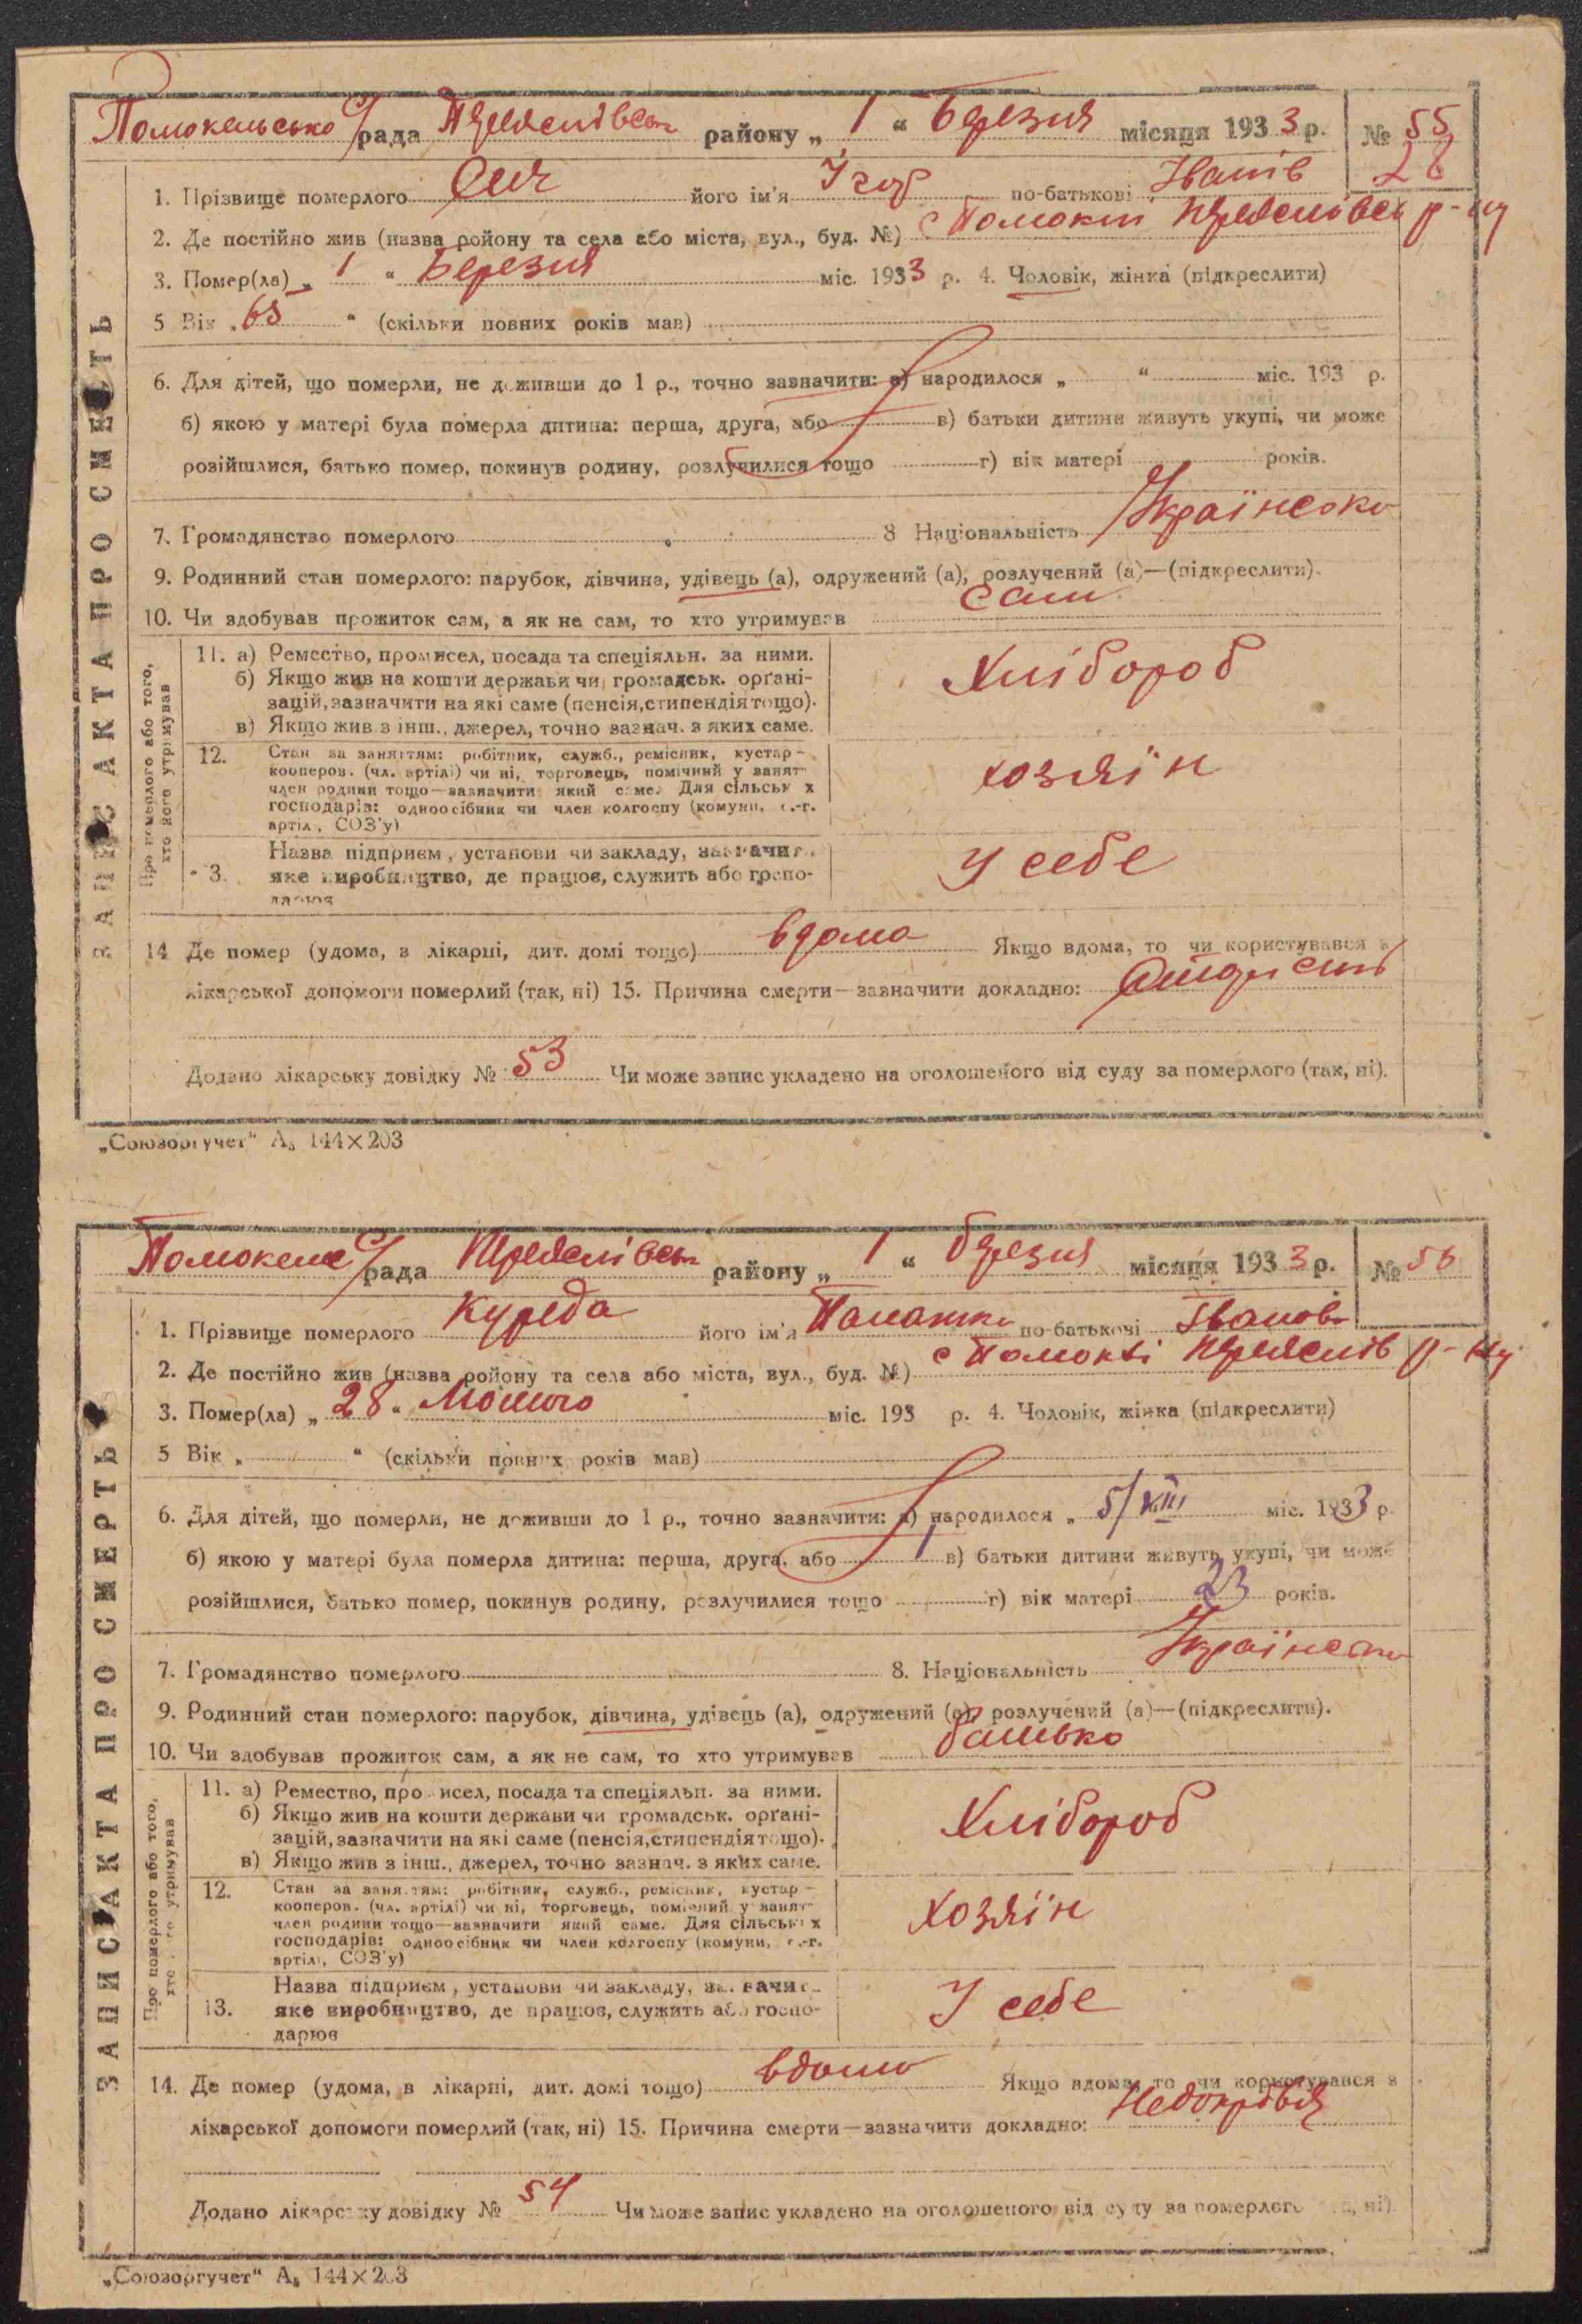 Помокельсько с/рада Переяслівськ району „ 1 “ Березня місяця 1933 р. № 55
28
1. Прізвище померлого його ім'я по-батькові Іванів
2. Де постійно жив (назва ройону та села або міста, вул., буд. №) с Помоклі Переяслівськ р-ну
3. Помер(ла) „ 1 “ Березня міс. 1933 р. 4. Чоловік, жінка (підкреслити)
5 Вік „ 65 “ (скільки повних років мав)
6. Для дітей, що померли, не доживши до 1 р., точно зазначити: а) народилося „ “ міс. 193 р.
б) якою у матері була померла дитина: перша, друга, або в) батьки дитини живуть укупі, чи може
розійшлися, батько помер, покинув родину, розлучилися тощо г) вік матері років.
7. Громадянство померлого 8 Національність Українсько
9. Родинний стан померлого: парубок, дівчина, удівець (а), одружений (а), розлучений (а)—(підкреслити).
10. Чи здобував прожиток сам, а як не сам, то хто утримував сам
ЗАПИС АКТА ПРО СМЕРТЬ
Про померлого або того,
хто його утримував
11. а) Ремество, промисел, посада та спеціяльн. за ними.
б) Якщо жив на кошти держави чи громадськ. орґані-
зацій, зазначити на які саме (пенсія, стипендія тощо).
в) Якщо жив з інш., джерел, точно зазнач. з яких саме.
Хлібороб
12. Стан за заняттям: робітник, служб., ремісник, кустар –
кооперов. (чл. артілі) чи ні, торговець, помічний у занят-
член родини тощо—зазначити який саме. Для сільськ х
господарів: одноосібник чи член колгоспу (комуни, с.-г.
артіл, СОЗ'у)
хозяін
3. Назва підприєм, установи чи закладу, зазначит.
яке виробництво, де працює, служить або госпо-
дарює
У себе
14 Де помер (удома, в лікарні, дит. домі тощо) вдома Якщо вдома, то чи користувався з
лікарської допомоги померлий (так, ні) 15. Причина смерти—зазначити докладно:
Додано лікарську довідку № 53 Чи може запис укладено на оголошеного від суду за померлого (так, ні).
„Союзоргучет“ А₅ 144×203
Помокельс с/рада Переяслівськ району „ 1 “ березня місяця 1933 р. № 56
1. Прізвище померлого Куреда його ім'я Палажка по-батькові Іванов
2. Де постійно жив (назва ройону та села або міста, вул., буд. №) с Помоклі Переяслів р-ну
3. Помер(ла) „ 28 “ Лютого міс. 193 р. 4. Чоловік, жінка (підкреслити)
5 Вік „ “ (скільки повних років мав)
6. Для дітей, що померли, не доживши до 1 р., точно зазначити: а) народилося „ 5/VIII міс. 1933 р.
б) якою у матері була померла дитина: перша, друга, або 1 в) батьки дитини живуть укупі, чи може
розійшлися, батько помер, покинув родину, розлучилися тощо г) вік матері 23 років.
7. Громадянство померлого 8. Національність Українсько
9. Родинний стан померлого: парубок, дівчина, удівець (а), одружений (а), розлучений (а)—(підкреслити).
10. Чи здобував прожиток сам, а як не сам, то хто утримував батько
ЗАПИС АКТА ПРО СМЕРТЬ
Про померлого або того,
хто його утримував
11. а) Ремество, промисел, посада та спеціяльн. за ними.
б) Якщо жив на кошти держави чи громадськ. орґані-
зацій, зазначити на які саме (пенсія, стипендія тощо).
в) Якщо жив з інш., джерел, точно зазнач. з яких саме.
Хлібороб
12. Стан за заняттям: робітник, служб., ремісник, кустар –
кооперов. (чл. артілі) чи ні, торговець, помічний у занят-
член родини тощо—зазначити який саме. Для сільськ х
господарів: одноосібник чи член колгоспу (комуни, с.-г.
артілі, СОЗ'у)
хозяїн
13. Назва підприєм, установи чи закладу, зазначит.
яке виробництво, де працює, служить або госпо-
дарює
У себе
14. Де помер (удома, в лікарні, дит. домі тощо) вдома Якщо вдома, то чи користувався з
лікарської допомоги померлий (так, ні) 15. Причина смерти—зазначити докладно: Недокрівія
Додано лікарську довідку № 54 Чи може запис укладено на оголошеного від суду за померлого (так, ні)
„Союзоргучет“ А₅ 144×203